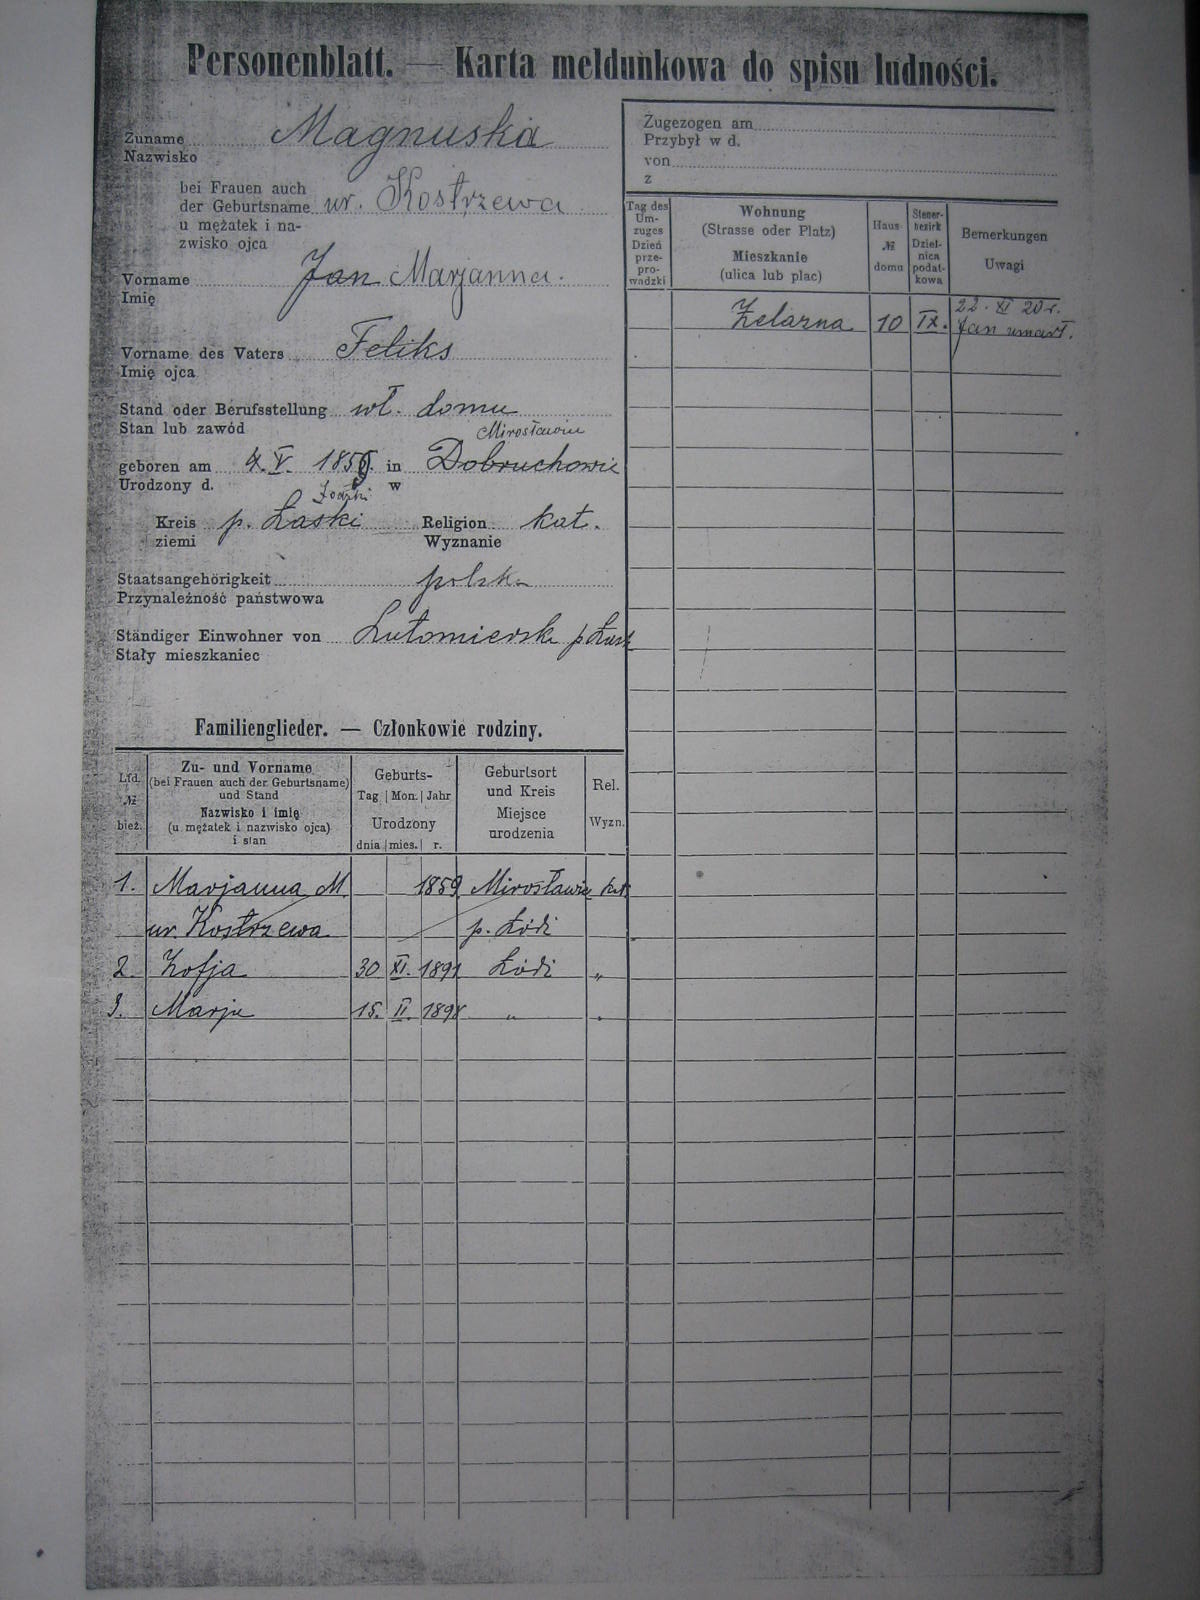 Personenblatt. — Karta meldunkowa do spisu ludności.
Zuname Magnuska
Nazwisko
bei Frauen auch
der Geburtsname ur. Kostrzewa
u mężatek i na-
zwisko ojca
Vorname Jan Marjanna.
Imię
Vorname des Vaters Feliks
Imię ojca
Stand oder Berufsstellung wł. domu
Stan lub zawód
Mirosławiu
geboren am 4. V. 1859. in Dobruchowie
Urodzony d. w
Łodzki
Kreis p. Łaski Religion kat.
ziemi Wyznanie
Staatsangehörigkeit polsk
Przynależność państwowa
Ständiger Einwohner von Lutomiersk p. Łask
Stały mieszkaniec
Zugezogen am
Przybył w d.
von
z
Tag des Um-zuges
Dzień prze-pro-wadzki
Wohnung
(Strasse oder Platz)
Mieszkanie
(ulica lub plac)
Haus
№
domu
Steuer-bezirk
Dziel-nica podat-kowa
Bemerkungen
Uwagi
22. XI 20 r.
Żelazna 10 IX. Jan umarł.
Familienglieder. — Członkowie rodziny.
Lfd.
№
bież.
Zu- und Vorname
(bei Frauen auch der Geburtsname)
und Stand
Nazwisko i imię
(u mężatek i nazwisko ojca)
i stan
Geburts-
Tag | Mon. | Jahr
Urodzony
dnia | mies. | r.
Geburtsort
und Kreis
Miejsce
urodzenia
Rel.
Wyzn.
1. Marjanna M. 1859 Mirosławie kat
ur. Kostrzewa p. Łódź
2. Zofja 30 XI. 1891 Łódź "
3. Marja 15. II. 1898 " "